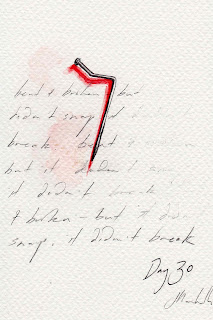 bent & broken - but
didn't snap it
break. bent &
but it didn't
it didn't break
& broken - but it
snap. it didn't break
Day 30